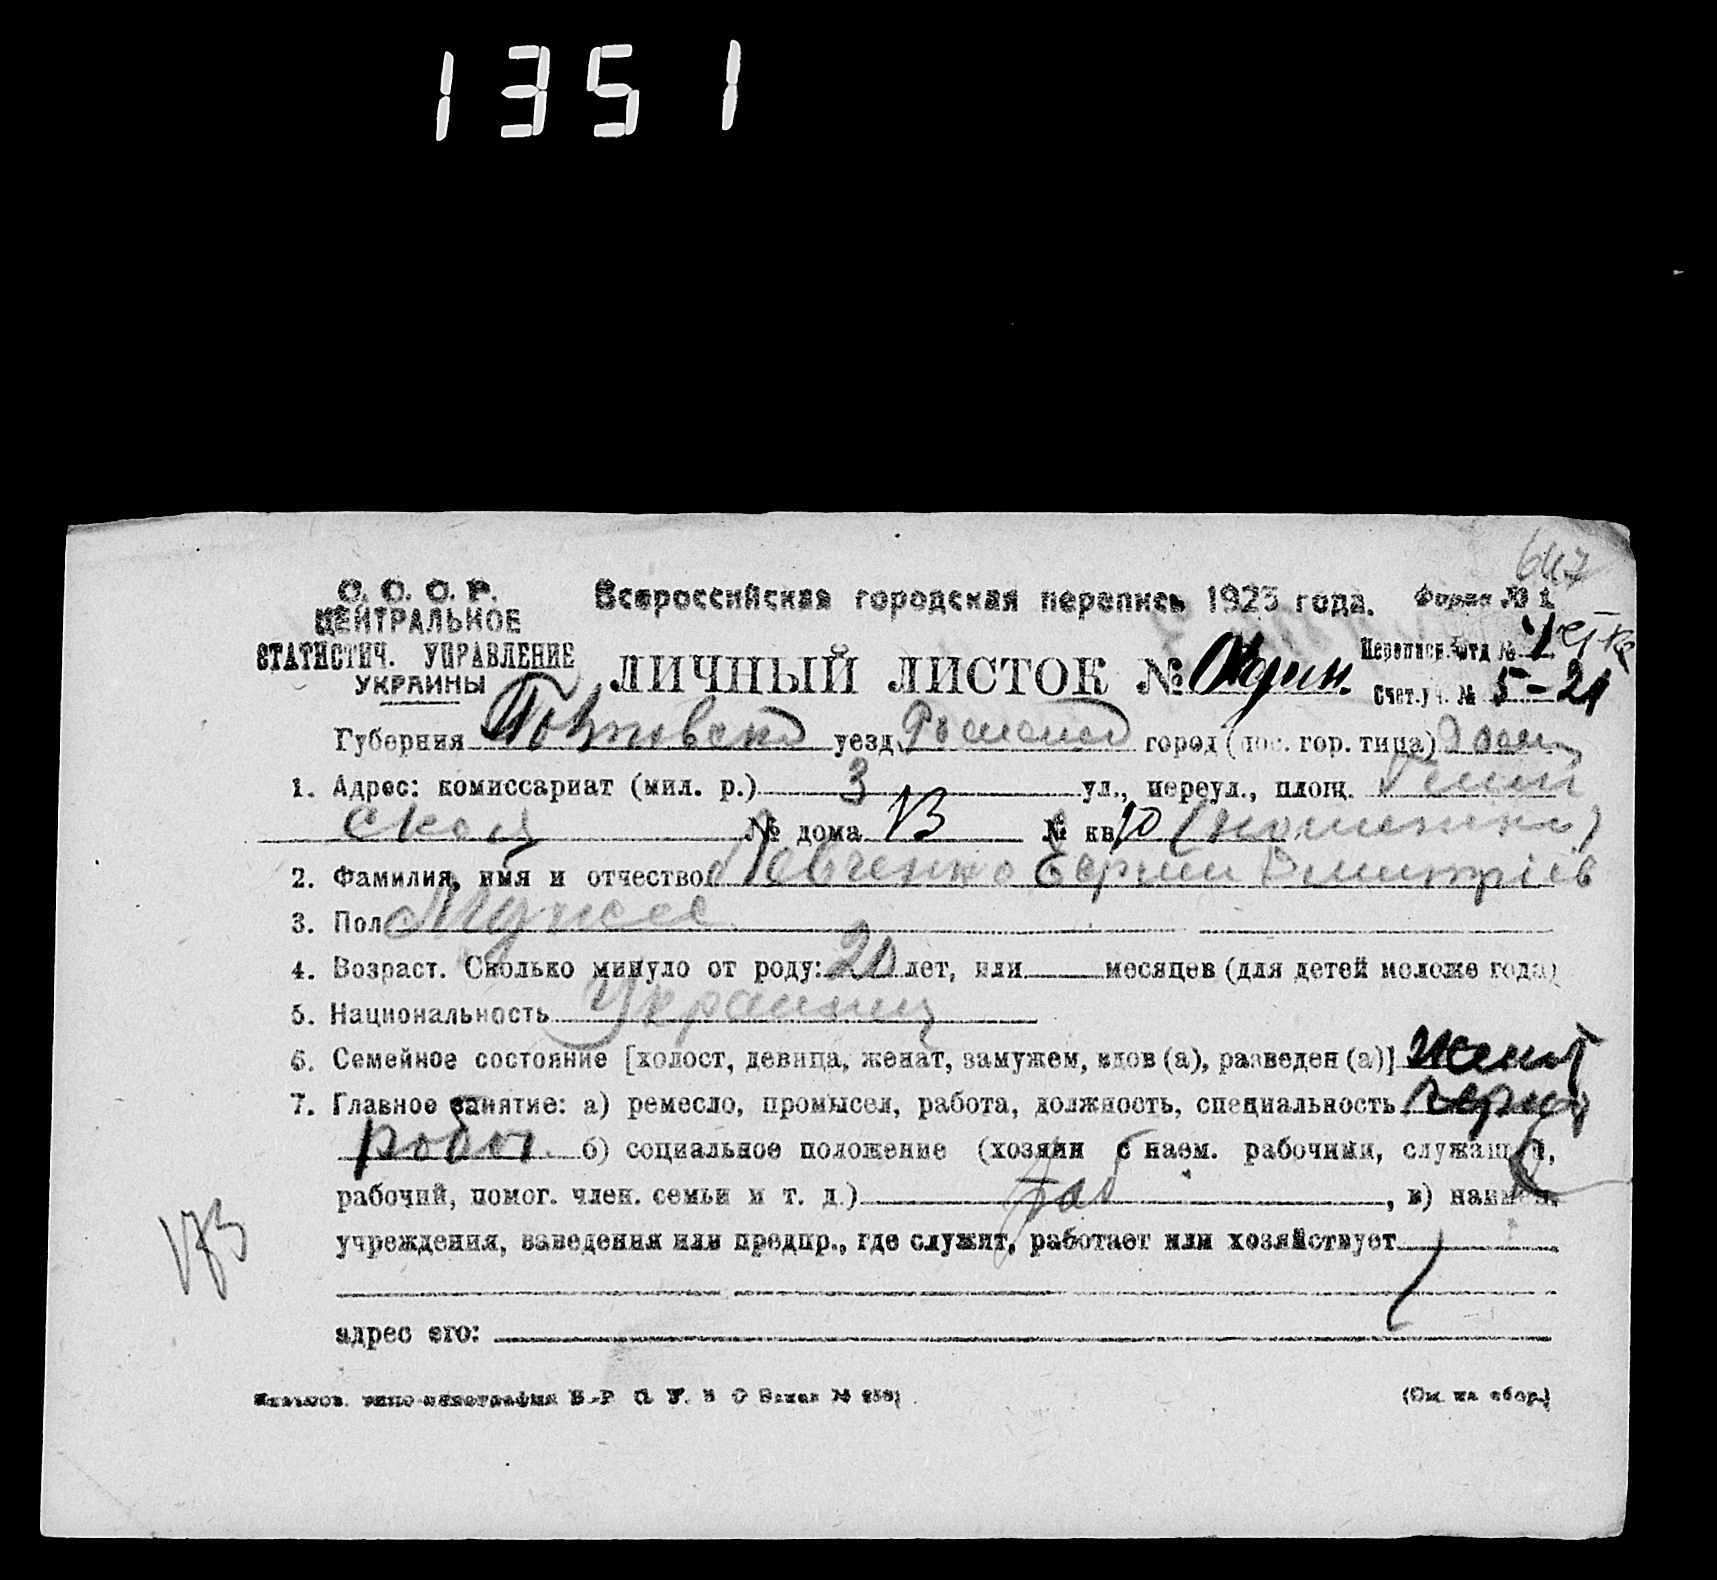 1351
647
С. С. С. Р.
ЦЕНТРАЛЬНОЕ
СТАТИСТИЧ. УПРАВЛЕНИЕ
УКРАИНЫ
Всероссийская городская перепись 1923 года.
Форма № 1
ЛИЧНЫЙ ЛИСТОК №
Переписн. Отд №
Счет. уч. № 5-21
Губерния Полтовско уезд город (пос. гор. типа)
1. Адрес: комиссариат (мил. р.) 3 ул., переул., площ.
ской № дома 13 № кв 10
2. Фамилия, имя и отчество Левченко Дмитрiев
3. Пол Мужск
4. Возраст. Сколько минуло от роду: 20 лет, или месяцев (для детей моложе года)
5. Национальность Украинец
6. Семейное состояние [холост, девица, женат, замужем, вдов (а), разведен (а)] женат
7. Главное занятие: а) ремесло, промысел, работа, должность, специальность черно
рабоч. б) социальное положение (хозяин с наем. рабочими, служащий,
рабочий, помог. член. семьи и т. д.) раб , в) наимен.
учреждения, заведения или предпр., где служит, работает или хозяйствует
173
адрес его:
(См. на обор.)